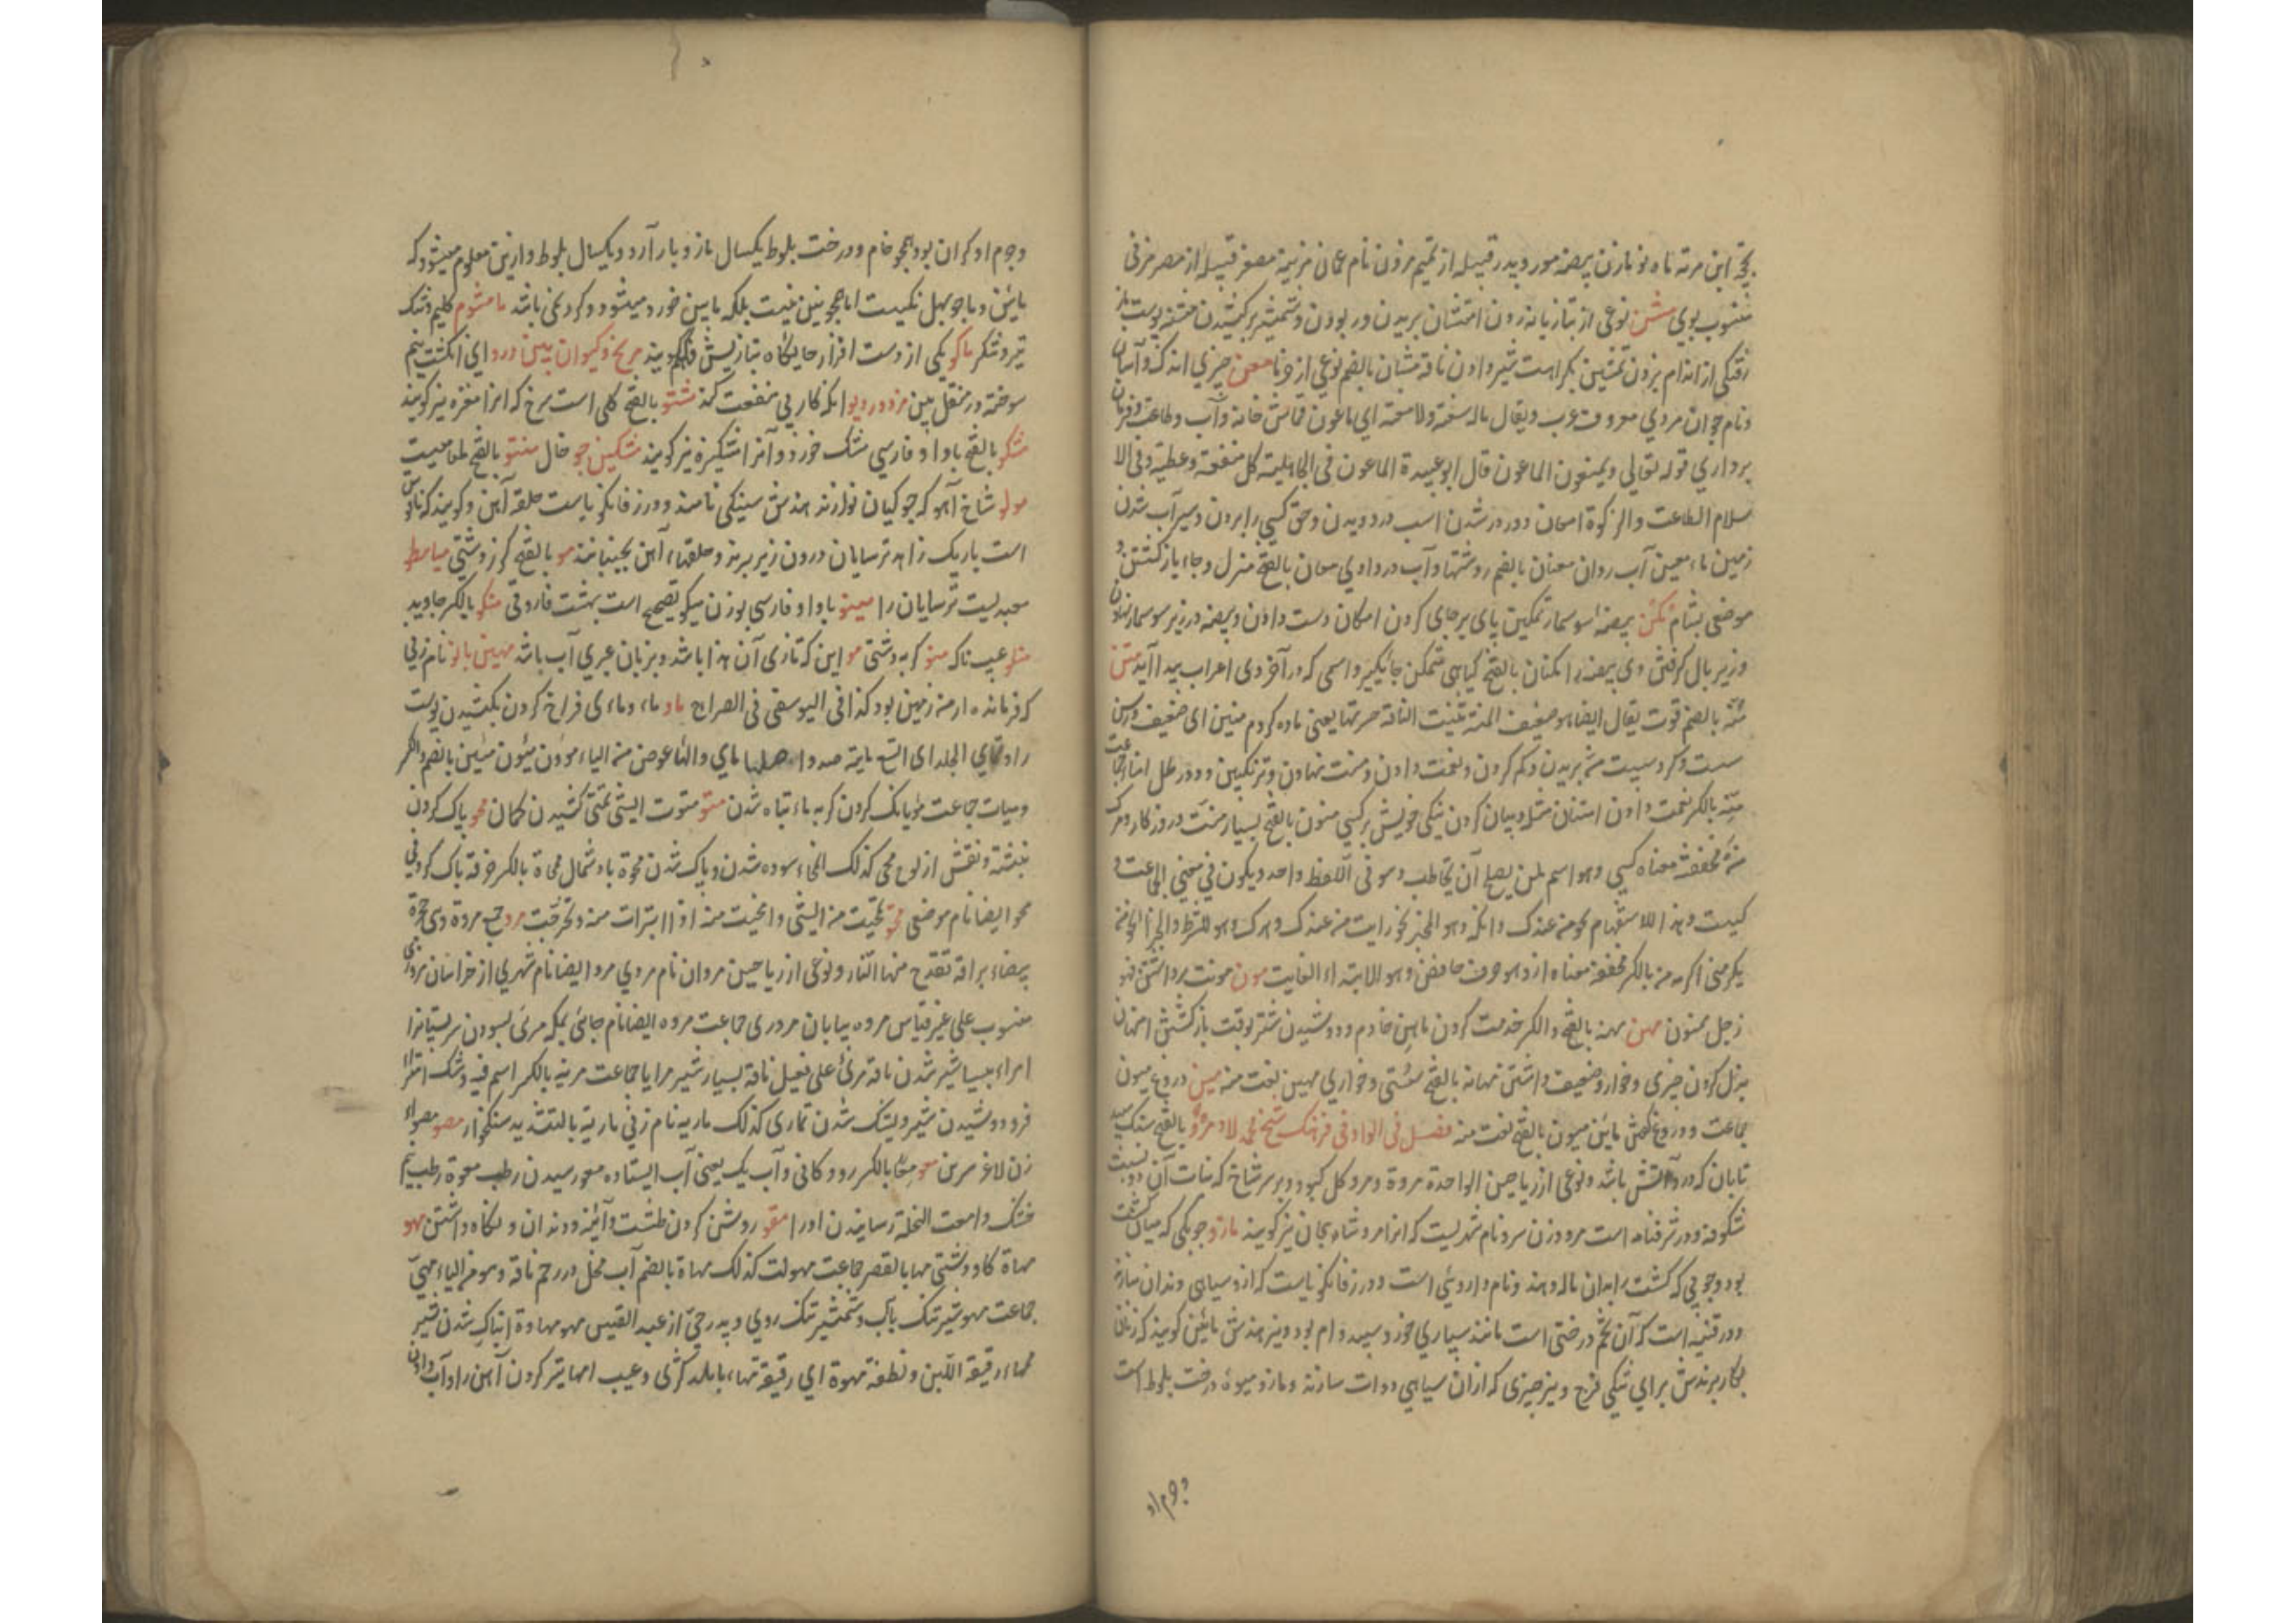 ابن مرته ماه نو مازن بیضه مور و پدر قبیله از تمیم مزون نام عمان مزینه مصغر قبیله از مصر مزنی
منسوب بوی مشن نوعی از تازیانه زدن امتشان بریدن و ربودن و شمشیر برکشیدن مشنه پوست باز
رفتگی از اندام بزدن تمشین بکراهت شیر دادن ناقه مشان بالضم نوعی از خرما معن چیزی اندک و آسان
و نام جوان مردی معروف عرب و یقال ماله سعنة ولا معنة ای ماعون قماش خانه و آب و طاعت و فرمان
برداری قوله تعالی و یمنعون الماعون قال ابو عبیدة الماعون فی الجاهلیة کل منفعة و عطیة و فی الا
سلام الطاعت و الزکوة امعان دور در شدن اسب در دویدن و حق کسی را بردن و سیر آب شدن
زمین ماء معین آب روان معنان بالضم روشتها و آب در وادی معان بالفتح منزل و جاء باز گشتن و
موضعی بشام مکن بیضهٔ سوسمار تمکین پای برجای کردن امکان دست دادن و بیضه در زیر سوسمار نهادن
و زیر بال گرفتن وی بیضه را مکنان بالفتح گیاهی متمکن جایگیر و اسمی که در آخر وی اعراب پیدا آید منن
منّة بالضم قوت یقال ایضا هو ضعیف المنة مننت الناقة حسرتها یعنی مانده کردم منین ای ضعیف و رسن
سست و گرد سیت منّ بریدن و کم کردن و نعمت دادن و منت نهادن و ترنگبین و دو رطل امناء جماعت
منّة بالکسر نعمت دادن امتنان مثله و بیان کردن نیکی خویش بر کسی منون بالفتح بسیار منت و روزگار و مرگ
من مخففة معناه کسی و هو اسم لمن یصلح آن یخاطب و هو فی اللفظ واحد و یکون فی معنی الجماعت و
کیست و هذا للاستفهام نحو من عندک و انکه و هو الخبر نحو رایت من عندک و هرک و هو للشرط و الجزا نحو من
یکرمنی اکرمه من بالکسر مخففة معناه از و هو حرف خافض و هو لابتداء الغایت مون مونت برداشتن فهو
رجل ممون مهن مهنه بالفتح و الکسر خدمت کردن ماهن خادم و دوشیدن شتر بوقت باز گشتن امتهان
بزل کردن چیزی و خوار و ضعیف داشتن مهانه بالفتح سستی و خواری مهین نعت منه مین دروغ میون
جماعت و دروغ گفتن مائن میون بالفتح نعت منه فصل فی الواو فی فرهنگ شیخ محمد لاد مرو بالفتح سنگ سپید
تابان که درو آتش باشد و نوعی از ریاحین الواحدة مروة و مرو گل کبود و بر سر شاخ که نبات آن دو بسیت
شکوفه و در شرفنامه است مرو وزن سرو نام شهریست که انرا مرو شاه یجان نیز گویند مازو چوبکی که میان کشت
بود و چوبی که کشت را بدان ماله دهند و نام دارویی است و در زفانگویاست که ازو سیاهی دندان سازند
و در قنیه است که آن تخم درختی است مانند سپاری خورد و سپید و ام بود و نیز هندش مائین گویند که زنان
بکار برندش برای تنگی فرج و نیز چیزی که ازان سیاهی دوات سازند و مازو میوهٔ درخت بلوط است
و جرم او
و جرم او گران بود همچو خام و درخت بلوط یکسال مازو بار آرد و یکسال بلوط و ازین معلوم میشود که
مائین و ماجوپهل یکیست اما همچونین نیست بلکه مایین خورد میشود و گرد نمی باشد مامشوم گلیم و تنک
تیر و شکر ماکو یکی از دست افزار جایگاه بتازیش گویند مریخ و کیوان ببین درو ای انگشت نیم
سوخته در منقل ببین مزدور دیو انکه کار بی منفعت کند مشتو بالفتح گلی است سرخ که انرا مغزه نیز گویند
مشکو بالفتح باواو فارسی مشک خورد و آنرا مشکیزه نیز گویند مشکین جو خال منتو بالفتح طعامیست
مولو شاخ آهو که جوکیان نوازند هندش سینکی نامند و در زفانگویاست حلقه آهن و گویند که ناقوس
است باریک زاهد ترسایان درون زیر برند و حلقهاء آهن بجنبانند مو بالفتح کرز دشتی میامطو
معبدیست ترسایان را مینو باواو فارسی بوزن نیکو تصحیح است بهشت فاروقی منکو بالکسر جاوید
منو عیب ناک منو گربه دشتی مو این که تازی آن هذا باشد و بزبان عبری آب باشد مهین بانو نام زنی
که فرمانده ارمن زمین بود کذا فی الیوسفی فی الصراح ماو ماء و ماءی فراخ کردن بکشیدن پوست
را و تمای الجلد ای اتسع مایة صد و اصلها مای و الهاء عوض من الیاء مؤون میئون مئین بالضم و الکسر
و میات جماعت مؤ بانگ کردن گربه ماء تباه شدن متو متوت الشیء تمتی کشیدن کمان محو پاک کردن
نبشته و نقش از لوح محی کذلک امحاء سوده شدن و پاک شدن محوة باد شمال ممحاة بالکسر خرقه پاک کردنی
محو ایضا نام موضعی مخو تمخیت من الشیء و امخیت منه اذا ابترات منه و تحرجت مرو جمع مروة و هی حجرة
بیضاء براقة تقدح منها النار و نوعی از ریاحین مروان نام مردی مرو ایضا نام شهری از خراسان مروزی
منسوب علی غیر قیاس مروه بیابان مروری جماعت مروه ایضا نام جائی بمکه مرئ بسودن سر پستانرا
امراء بسیار شیر شدن ناقه مرئ علی فعیل ناقة بسیار شیر مرایا جماعت مریة بالکسر اسم فیه و شک امترا
فرو دوشیدن شیر و بشک شدن تماری کذلک ماریه نام زنی ماریة بالتشدید سنگخوار مصو مصواء
زن لاغر سرین معو معا بالکسر رودگانی و آب یک یعنی آب ایستاده معو رسیدن رطب معوة رطب نیم
خشک و امعت النخلة رسانیدن او را مقو روشن کردن طشت و آئینه و دندان و نگاه داشتن مهو
مهاة گاو دشتی مها بالقصر جماعت مهوات کذلک مهاة بالضم آب فحل در رحم ناقه و هو من الیاء مهیّ
جماعت مهو شیر تنک بآب و شمشیر تنک روی و پدر حیّ از عبد القیس مهو مهاوة تنک شدن شیر
مهاء رقیقة اللبن و نطفة مهوة ای رقیقة مهاء بالمد کژی و عیب امها تیز کردن آهن را و آب دادن